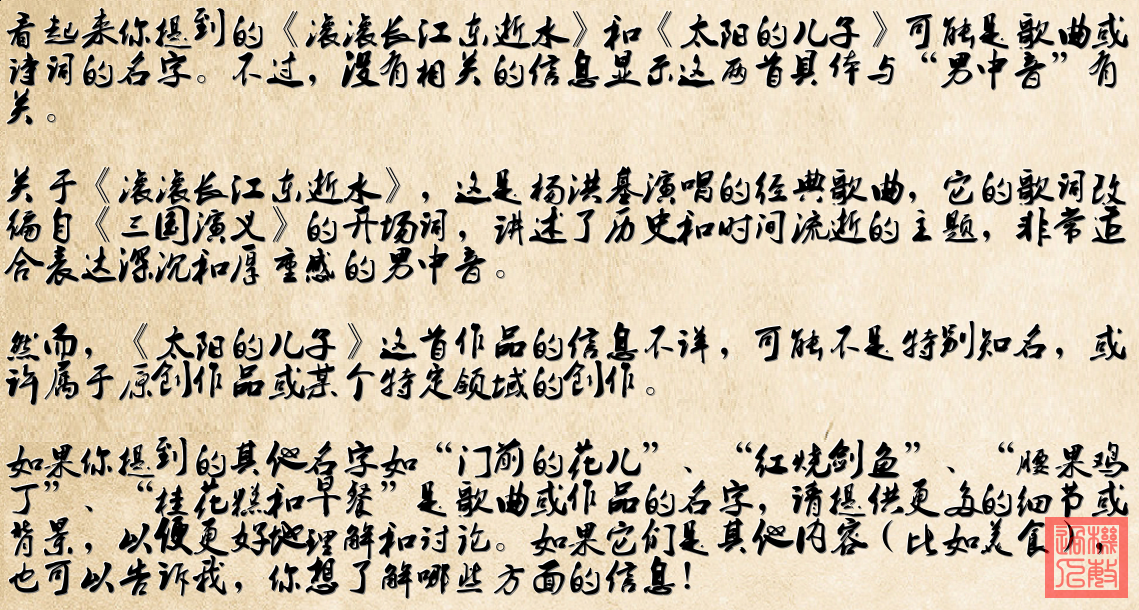 看起来你提到的《滚滚长江东逝水》和《太阳的儿子》可能是歌曲或
诗词的名字。不过，没有相关的信息显示这两首具体与“男中音”有
关。
关于《滚滚长江东逝水》，这是杨洪基演唱的经典歌曲，它的歌词改
编自《三国演义》的开场词，讲述了历史和时间流逝的主题，非常适
合表达深沉和厚重感的男中音。
然而，《太阳的儿子》这首作品的信息不详，可能不是特别知名，或
许属于原创作品或某个特定领域的创作。
如果你提到的其他名字如“门前的花儿”、“红烧剑鱼”、“腰果鸡
丁”、“桂花糕和早餐”是歌曲或作品的名字，请提供更多的细节或
背景，以便更好地理解和讨论。如果它们是其他内容（比如美食），
也可以告诉我，你想了解哪些方面的信息！